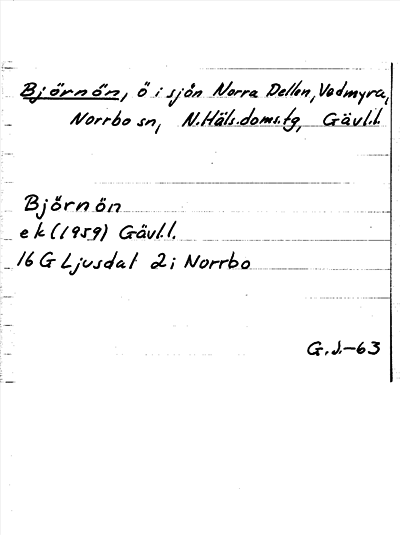 Björnön, ö i sjön Norra Dellen, Vadmyra,
Norrbo sn, N.Häls.doms.tg, Gävl.l.
Björnön
ek (1959) Gävl.l.
16 G Ljusdal 2 i Norrbo
G.J.-63